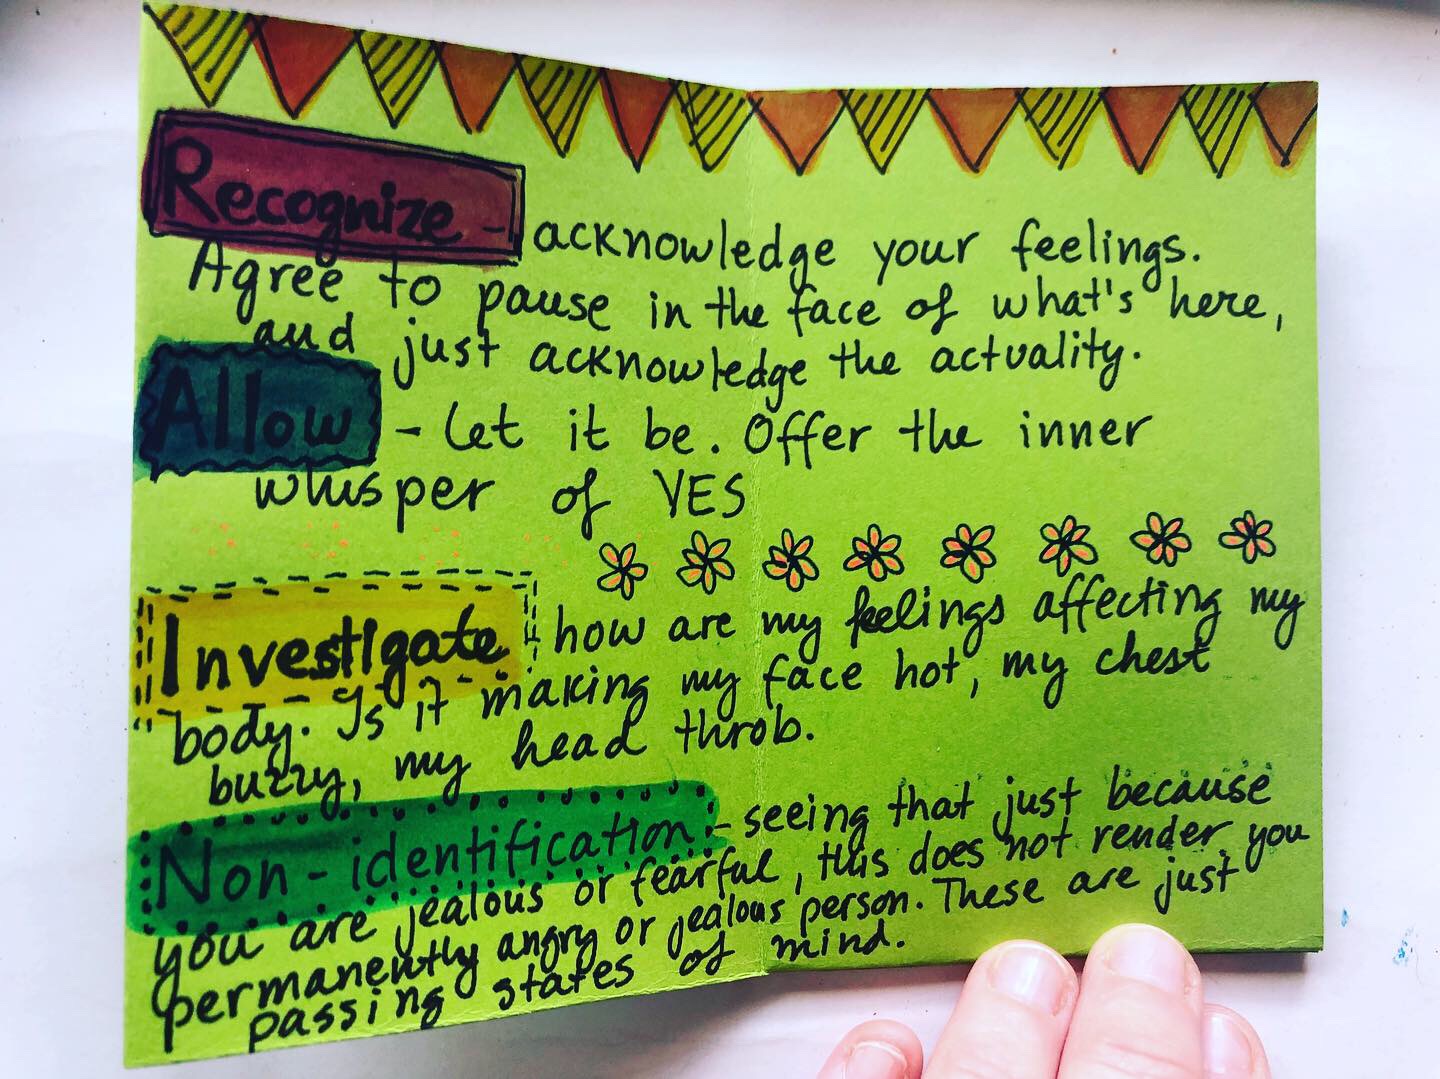 Recognize - acknowledge your feelings.
Agree to pause in the face of what's here,
and just acknowledge the actuality.
Allow - let it be. Offer the inner
whisper of YES
Investigate - how are my feelings affecting my
body. Is it making my face hot, my chest
buzzy, my head throb.
Non-identification - seeing that just because
you are jealous or fearful, this does not render you
permanently angry or jealous person. These are just
passing states of mind.